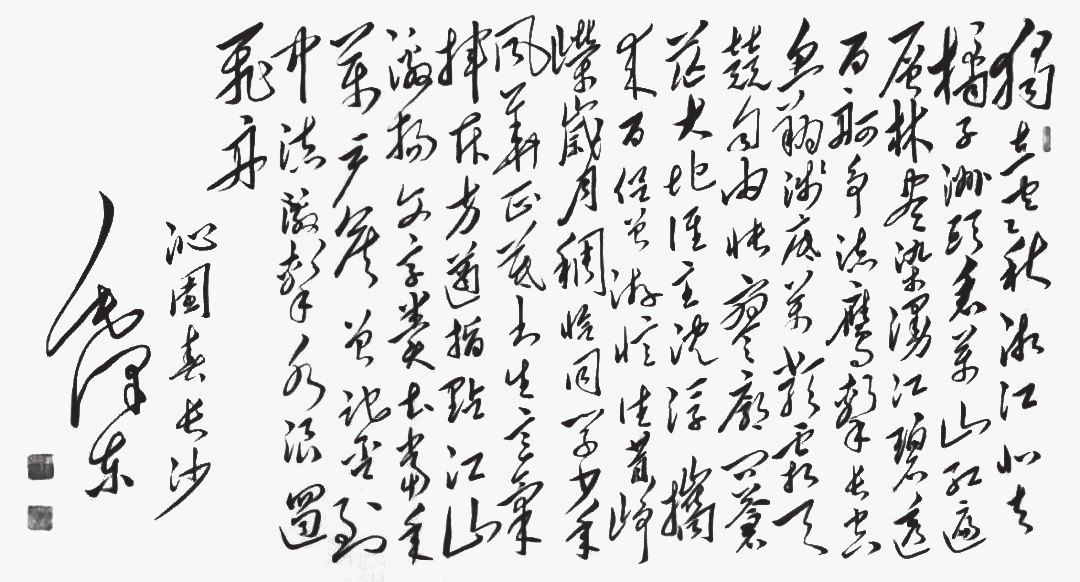 獨立寒秋湘江北去
橘子洲頭看萬山紅遍
层林尽染漫江碧透
百舸争流鹰擊長空
魚翔浅底萬類霜天
競自由怅寥廓问蒼
茫大地谁主沈浮攜
来百侣曾游忆往昔峥
嵘歲月稠恰同学少年
風華正茂书生意氣
揮斥方遒指點江山
激扬文字粪土當年
萬户侯曾记否到
中流激擊水浪遏
飛舟
沁園春長沙
毛澤东